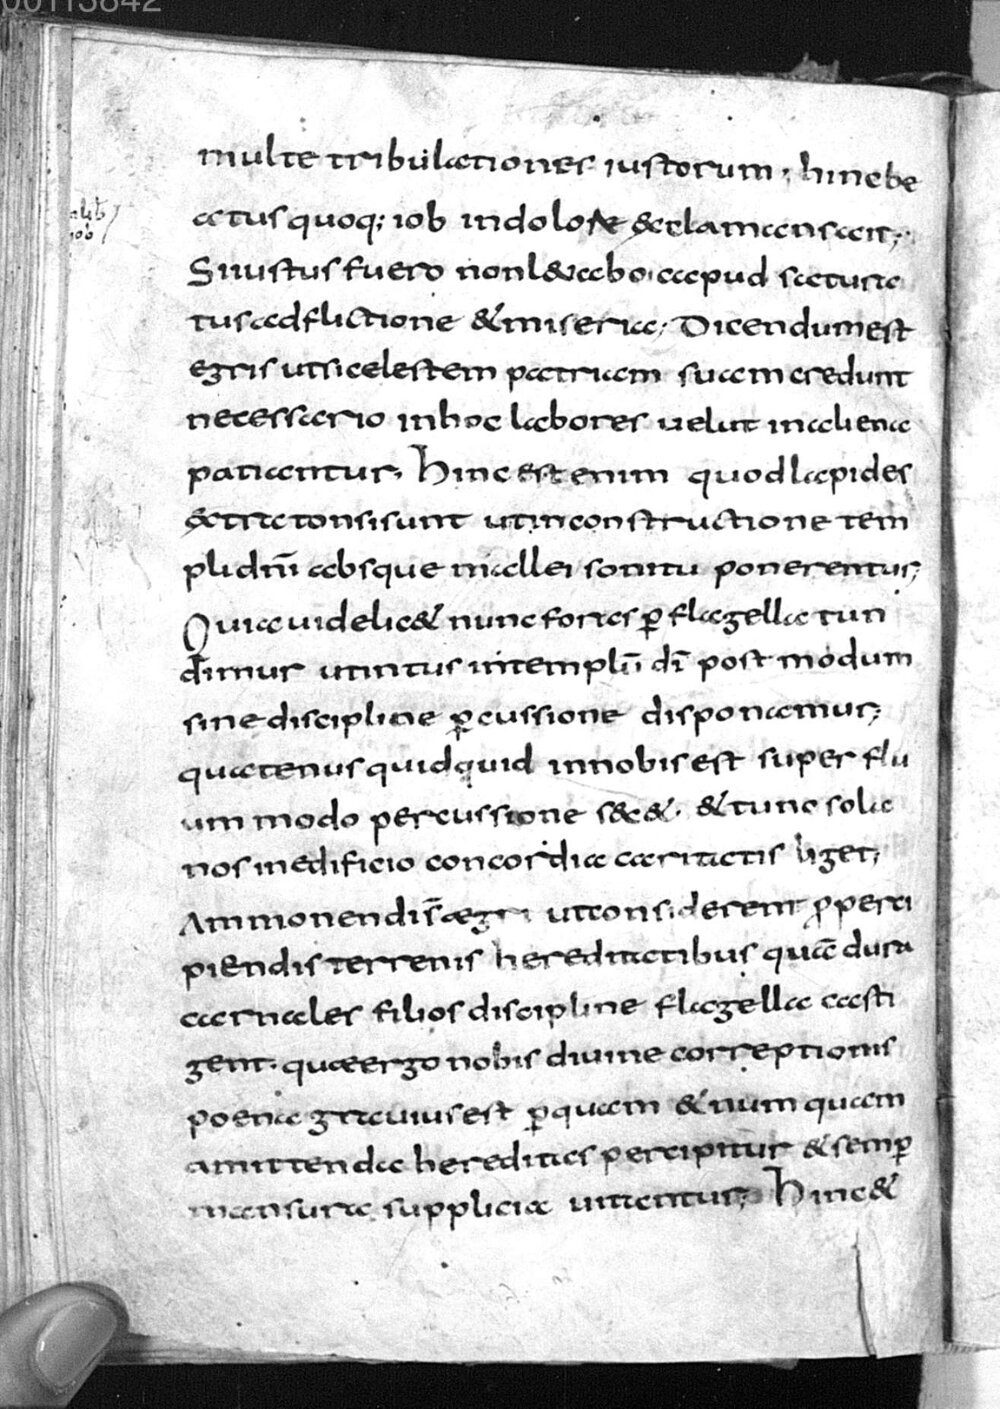 00113842
multe tribulationes iustorum; hinc be
atus quoq; iob in dolore exclamans ait;
Si iustus fuero non l&abo caput satura
tus adflictione & miseria; Dicendum est
egris ut si celestem patriam suam credunt
necessario in hoc labores uelut in aliena
patiantur, Hinc est enim quod lapides
extra tonsi sunt ut in constructione tem
pli dn̄i absque mallei sonitu ponerentur;
Quia uidelic& nunc foras ꝑ flagella tun
dimur ut intus in templū dī post modum
sine discipline ꝑcussione disponamur;
quatenus quidquid in nobis est super flu
um modo percussione sec&. & tunc sola
nos in edificio concordia caritatis liget;
Ammonendi s̄ aegri ut considerent ꝓ perci
piendis terrenis hereditatibus quā dura
carnales filios discipline flagella casti
gent. quae ergo nobis diuine correptionis
poena grauius est ꝑ quam & numquam
amittenda hereditas percipitur & semꝑ
mansura supplicia uitentur; Hinc &